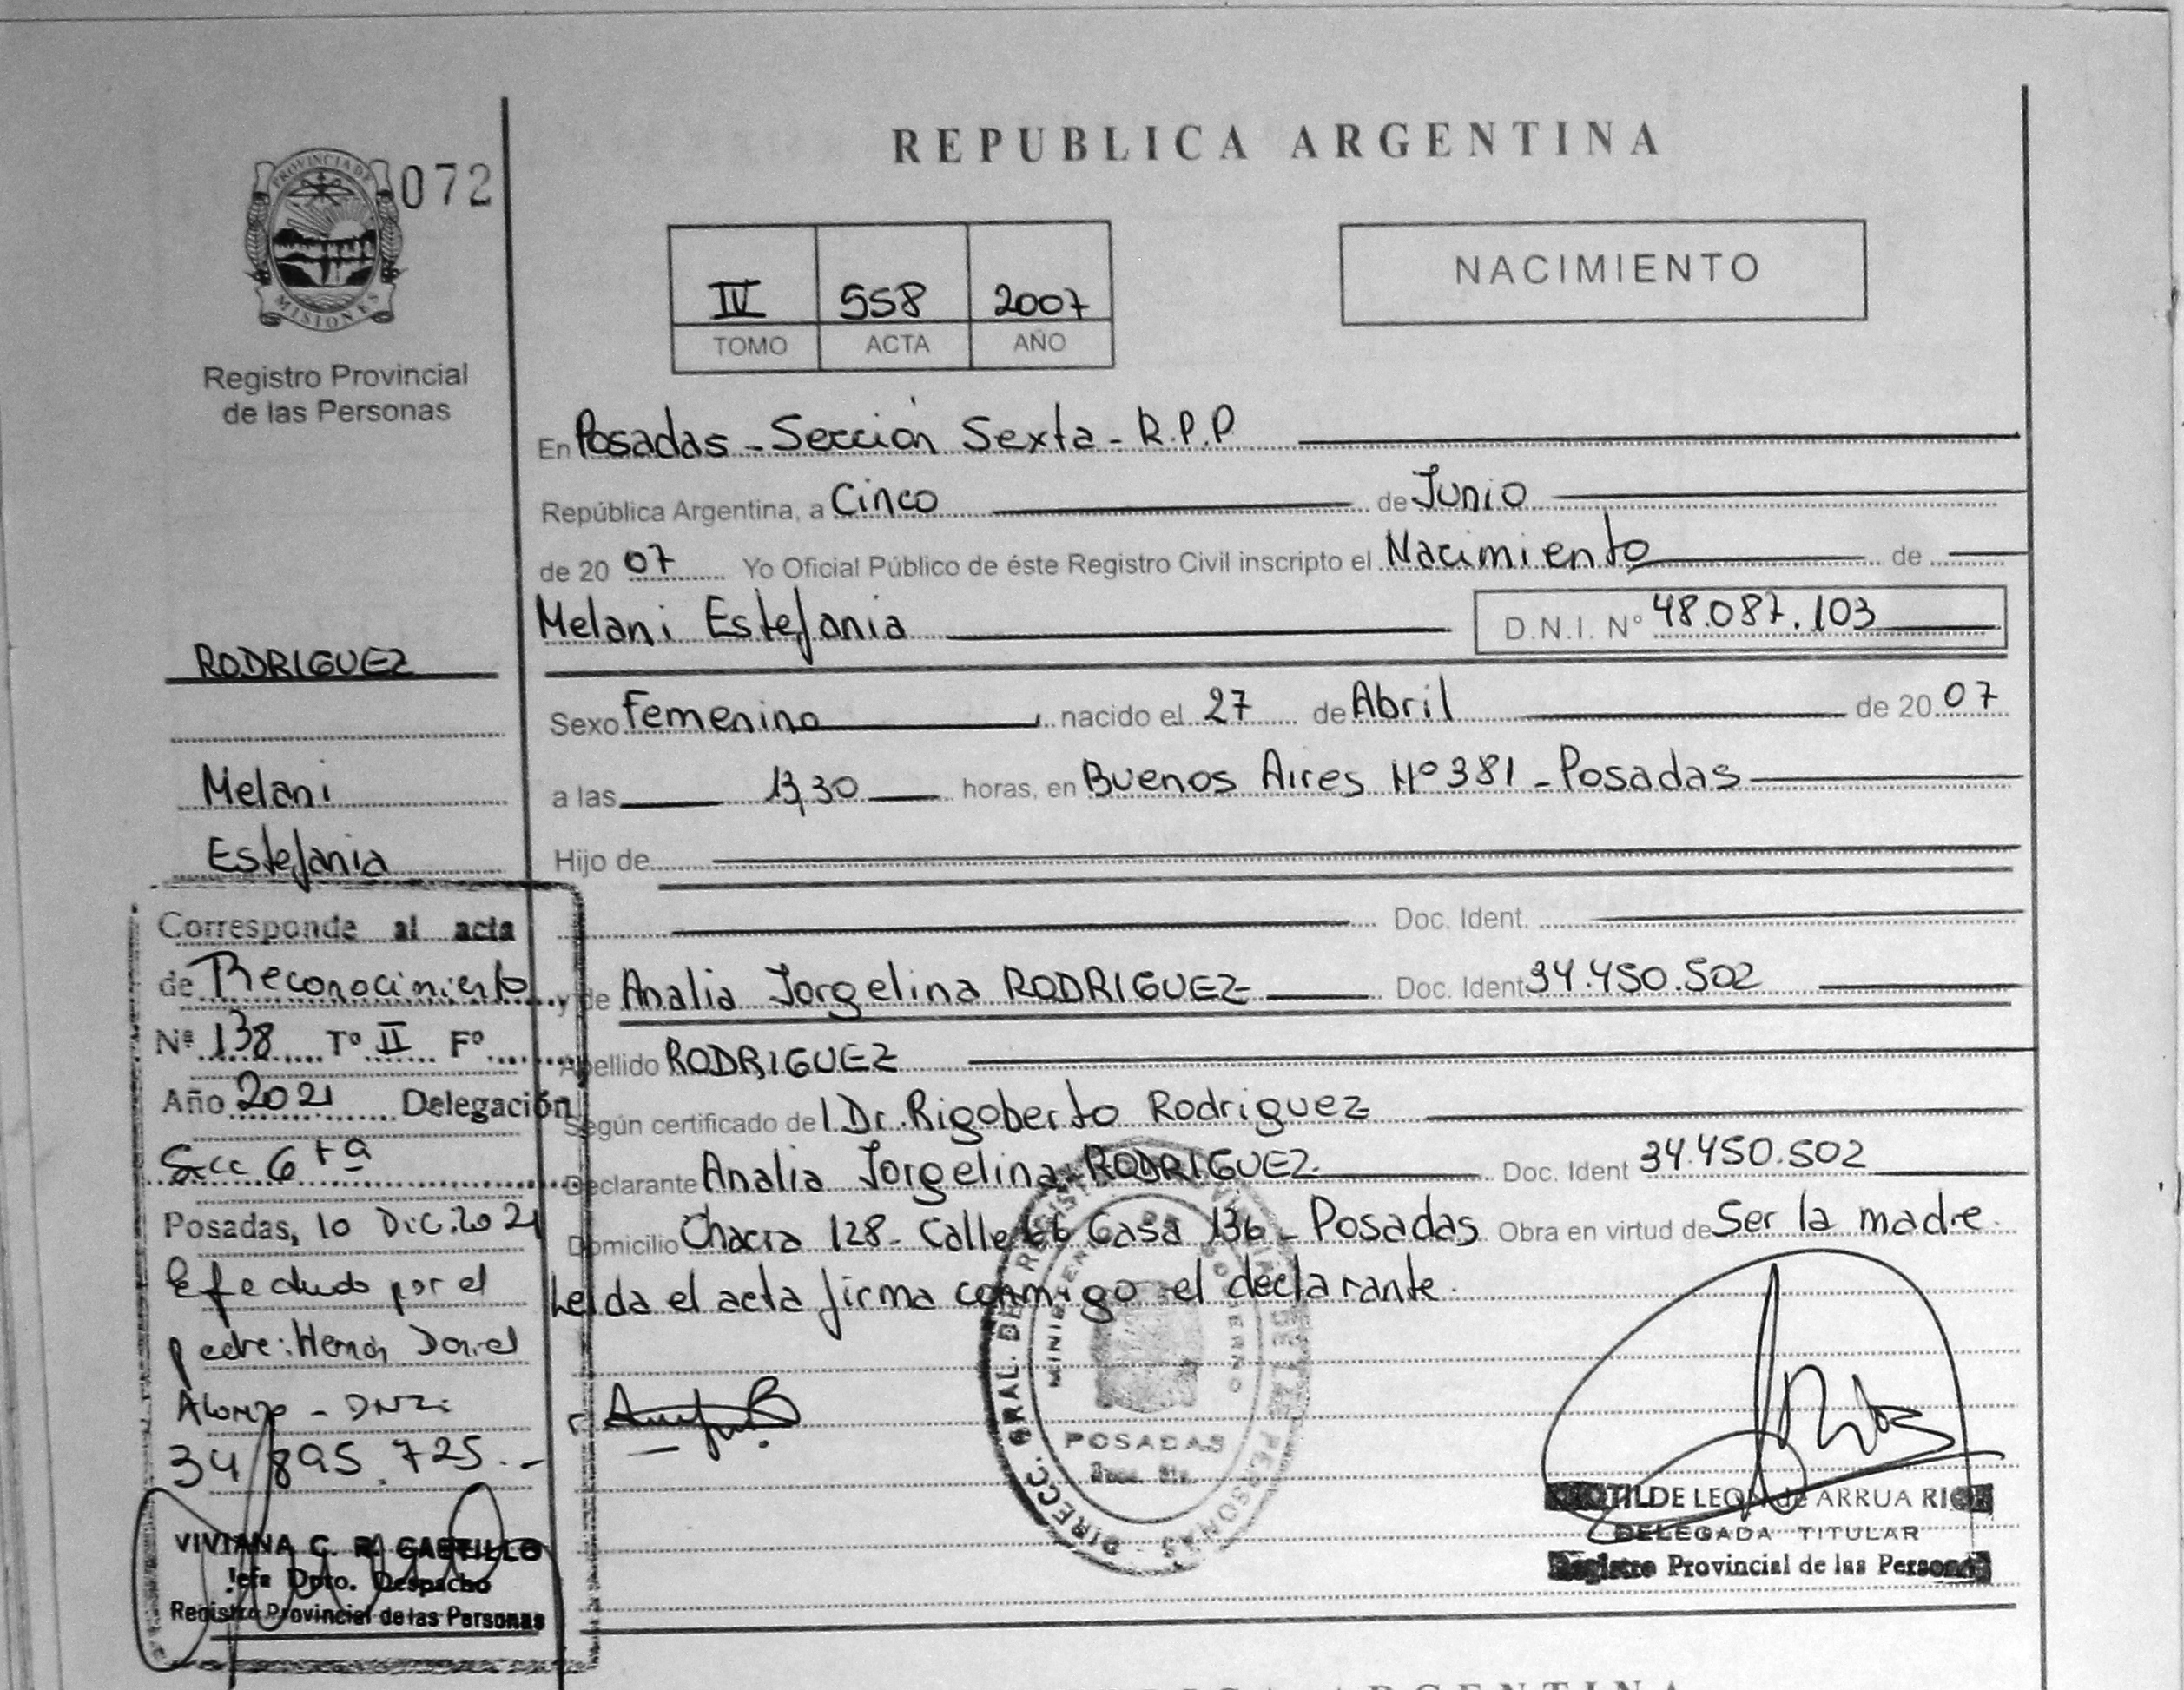 REPUBLICA ARGENTINA
PROVINCIA DE
MISIONES
072
Registro Provincial
de las Personas
IV 558 2007
TOMO ACTA AÑO
NACIMIENTO
En Posadas - Sección Sexta - R.P.P
República Argentina, a Cinco de Junio
de 20 07 Yo Oficial Público de éste Registro Civil inscripto el Nacimiento de
Melani Estefania D.N.I. Nº 48.087.103
RODRIGUEZ
Melani
Estefania
Sexo Femenino nacido el 27 de Abril de 20 07
a las 13,30 horas, en Buenos Aires Nº 381 - Posadas
Hijo de
Doc. Ident.
y de Analia Jorgelina RODRIGUEZ Doc. Ident 34.450.502
Apellido RODRIGUEZ
Según certificado de l Dr. Rigoberto Rodriguez
Declarante Analia Jorgelina RODRIGUEZ Doc. Ident 34.450.502
Domicilio Chacra 128 - Calle Casa 136 - Posadas Obra en virtud de Ser la madre.
Leida el acta firma conmigo el declarante.
Corresponde al acta
de Reconocimiento
Nº 138 Tº II Fº
Año 2021 Delegación
Secc 6ta
Posadas, 10 Dic. 2021
Efectuado por el
padre: Hernán Daniel
Alonzo - DNI:
34.895.725.-
VIVIANA C. R. CASTILLO
Jefa Dpto. Despacho
Registro Provincial de las Personas
DIRECC. GRAL. DEL REGISTRO PERSONAS
POSADAS
CLOTILDE LEON de ARRUA RIOS
DELEGADA TITULAR
Registro Provincial de las Personas
REPUBLICA ARGENTINA